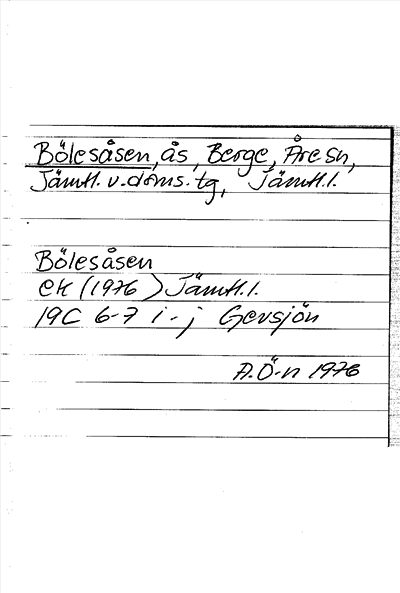 Bölesåsen, ås, Berge, Åre sn,
Jämtl. v. doms. tg, Jämtl. l.
Bölesåsen
ek (1976) Jämtl. l.
19C 6-7 i-j Gevsjön
A.Ö-n 1976